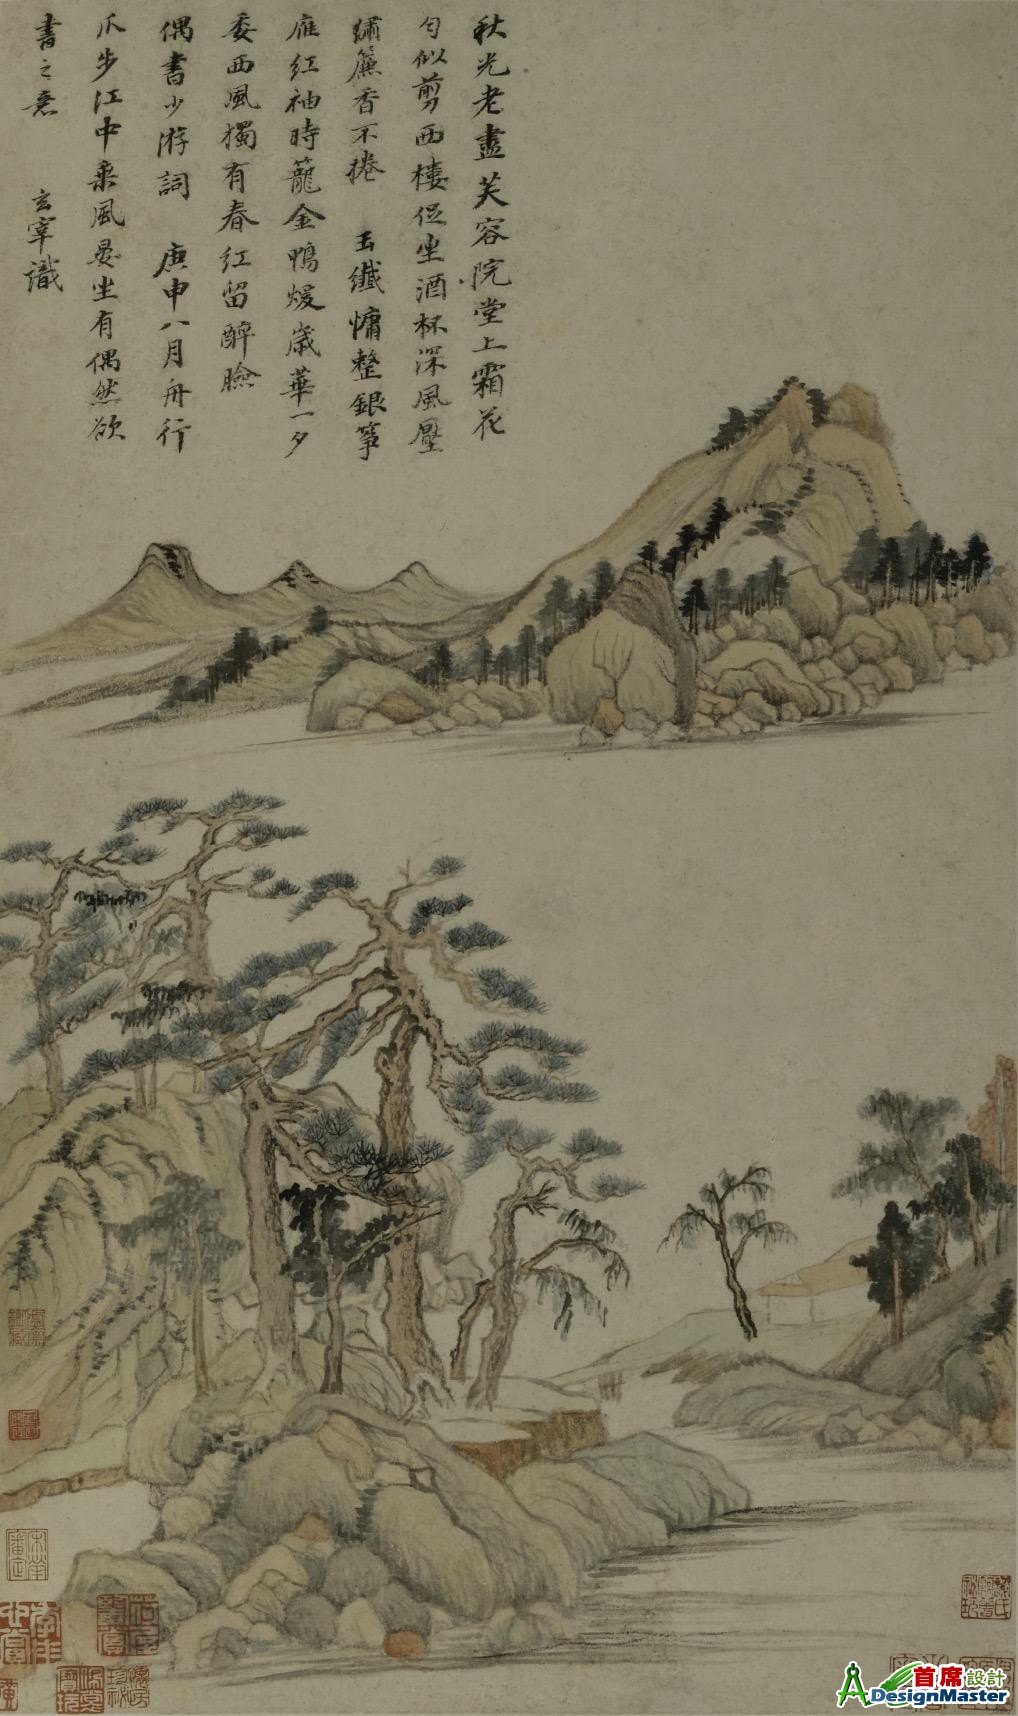 秋光老盡芙容院堂上霜花
勻似剪西樓促坐酒杯深風壓
繡簾香不捲 玉纖慵整銀箏
雁紅袖時籠金鴨煖歲華一夕
委西風獨有春紅留醉臉
偶書少游詞 庚申八月舟行
瓜步江中乘風晏坐有偶然欲
書之意 玄宰識
首席設計
DesignMaster